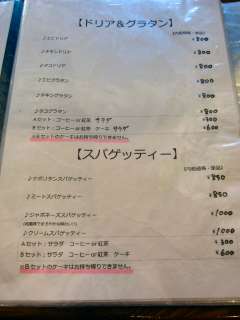 【ドリア&グラタン】
(内税価格・単品)
♪エビドリア ¥800
♪チキンドリア ¥800
♪タコドリア ¥800
♪エビグラタン ¥800
♪チキングラタン ¥800
♪タコグラタン ¥800
Aセット:コーヒーor紅茶 サラダ ¥300
Bセット:コーヒーor紅茶 ケーキ サラダ ¥600
※Bセットのケーキはお持ち帰りできません。
【スパゲッティー】
(内税価格・単品)
♪ナポリタンスパゲッティー ¥850
♪ミートスパゲッティー ¥850
♪ジャポネーズスパゲッティー ¥1000
♪クリームスパゲッティー ¥1000
Aセット:サラダ コーヒーor紅茶 ¥300
Bセット:サラダ コーヒーor紅茶 ケーキ ¥600
※Bセットのケーキはお持ち帰りできません。